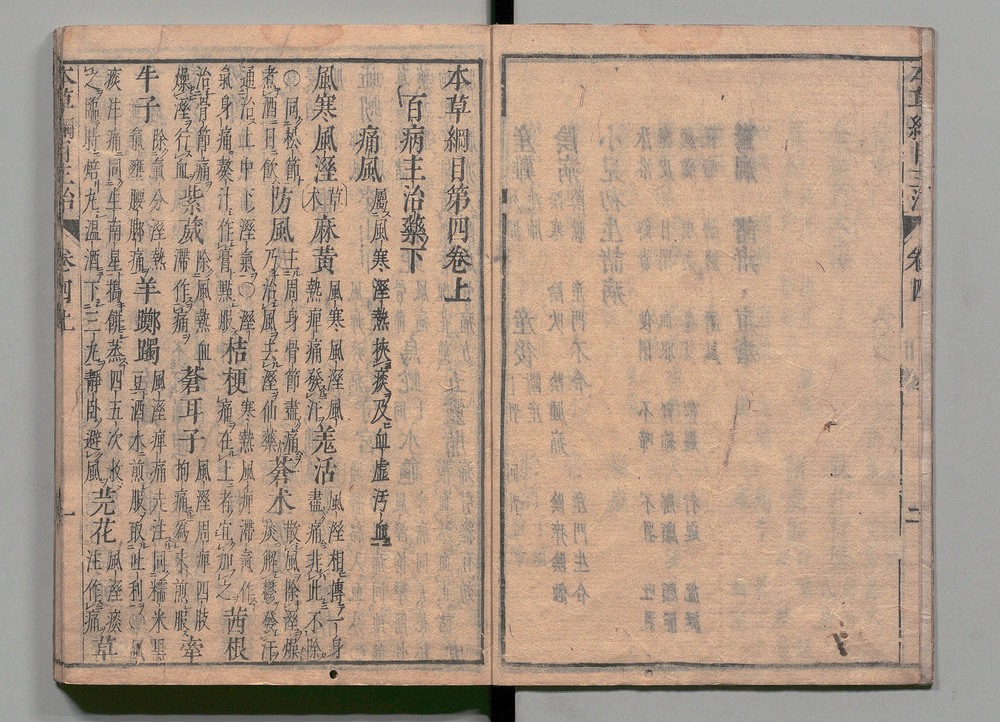 本草綱目主治 卷四 二
本草綱目第四卷上
百病主治藥下
痛風 屬風寒溼熱挾痰及血虛污血
風寒風溼 草木 麻黃 風寒風溼風熱痺痛發汗 羌活 風溼相搏一身盡痛非此不除
○同松節煮酒日飲 防風 主周身骨節盡痛乃治風去溼仙藥 蒼朮 散風除溼燥痰解鬱發汗
通治上中下溼氣○溼氣身痛熬汁作膏點服 桔梗 寒熱風痺滯氣作痛在上者宜加之 茜根
治骨節痛燥溼行血 紫葳 除風熱血滯作痛 蒼耳子 風溼周痺四肢拘痛為末煎服 牽
牛子 除氣分溼熱氣壅腰腳痛 羊躑躅 風溼痺痛走注同糯米黑豆酒水煎服取吐利○風
痰注痛同生南星搗餅蒸四五次收之臨時焙丸溫酒下三丸靜臥避風 芫花 風溼痰注作痛 草
本草綱目主治 卷四上 一